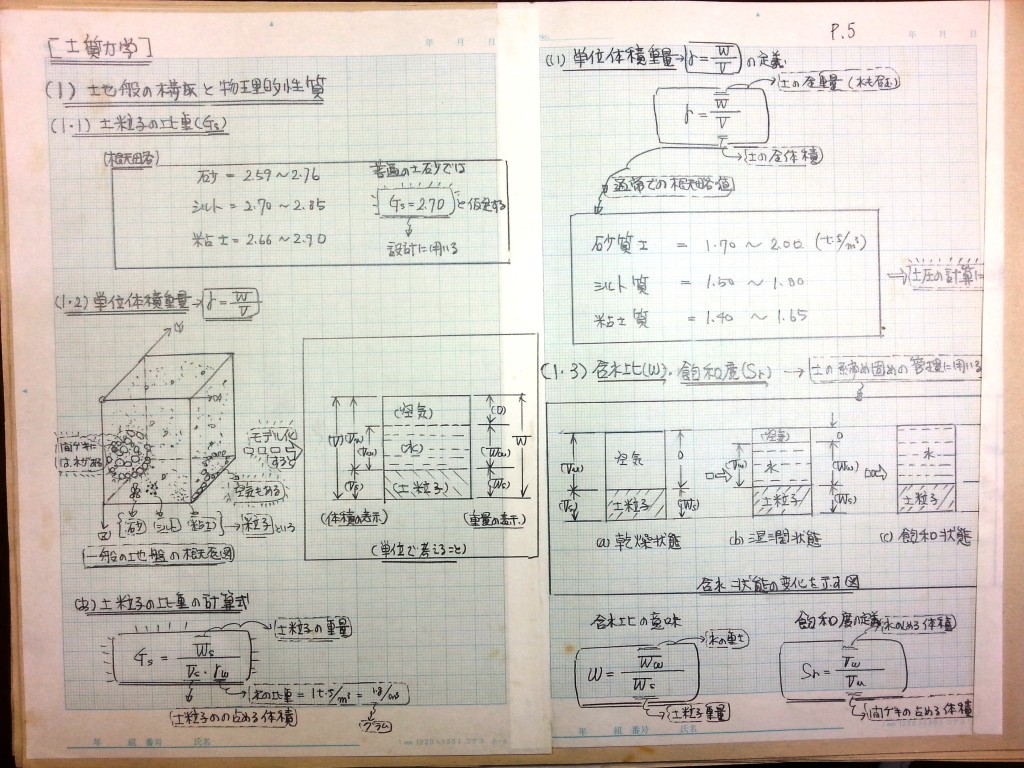 [土質力学]
(1) 地般の構成と物理的性質
(1・1) 土粒子の比重(Gs)
(概略)
砂 = 2.59～2.76
シルト = 2.70～2.85
粘土 = 2.66～2.90
普通の土砂では
Gs=2.70 と仮定する
設計に用いる
(1・2) 単位体積重量→ γ=W/V
間ゲキには、水がある
空気もある
{砂 シルト 粘土}→粒子という
一般の地盤の概念図
モデル化すると
(V) (Vv) (Vw) (Vs)
(空気)
(水)
(土粒子)
(0) (Ww) (Ws) W
(体積の表示)
(重量の表示)
(単位で考えること)
土粒子の比重の計算式
Gs = Ws / Vs・γw
土粒子の重量
水の比重 = 1t・f/m³ = 1g/cm³
グラム
土粒子のの占める体積
年 組 番号 氏名
年 月 日
P.5
(1) 単位体積重量→ γ=W/V の定義
γ = W/V
土の全重量 (水も含む)
土の全体積
通常での概略値
砂質土 = 1.70 ～ 2.00 (t・f/m³)
シルト質 = 1.50 ～ 1.80
粘土質 = 1.40 ～ 1.65
⇒土圧の計算に
(1・3) 含水比(W)・飽和度(Sr) → 土の締め固めの管理に用いる
(Vv) (Vs)
空気
土粒子
0 (Ws)
(Vw)
(空気)
水
土粒子
0 (Ww) (Ws)
水
土粒子
(a) 乾燥状態
(b) 湿潤状態
(c) 飽和状態
含水状態の変化を示す図
含水比の意味
W = Ww / Ws
水の重さ
土粒子重量
飽和度の定義
Sr = Vw / Vv
水のしめる体積
間ゲキの占める体積
年 組 番号 氏名